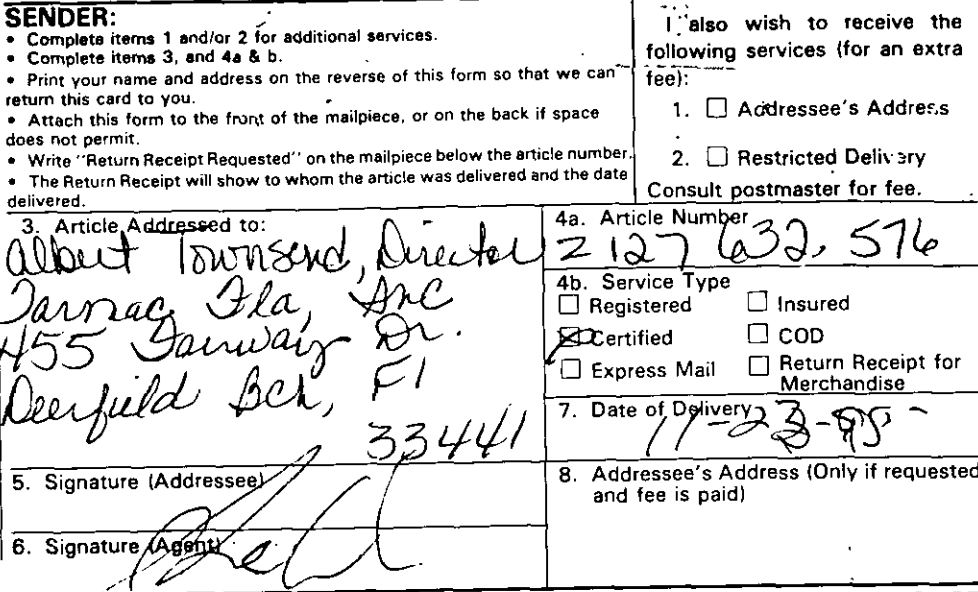 SENDER:
• Complete items 1 and/or 2 for additional services.
• Complete items 3, and 4a & b.
• Print your name and address on the reverse of this form so that we can
return this card to you.
• Attach this form to the front of the mailpiece, or on the back if space
does not permit.
• Write "Return Receipt Requested" on the mailpiece below the article number.
• The Return Receipt will show to whom the article was delivered and the date
delivered.
I also wish to receive the
following services (for an extra
fee):
1. ☐ Addressee's Address
2. ☐ Restricted Delivery
Consult postmaster for fee.
3. Article Addressed to:
Albert Townsend, Director
Tarmac Fla, Inc
455 Fairway Dr.
Deerfield Bch, Fl
33441
4a. Article Number
Z 127 632, 576
4b. Service Type
☐ Registered ☐ Insured
☒ Certified ☐ COD
☐ Express Mail ☐ Return Receipt for
Merchandise
7. Date of Delivery
11-23-95
5. Signature (Addressee)
6. Signature (Agent)
8. Addressee's Address (Only if requested
and fee is paid)